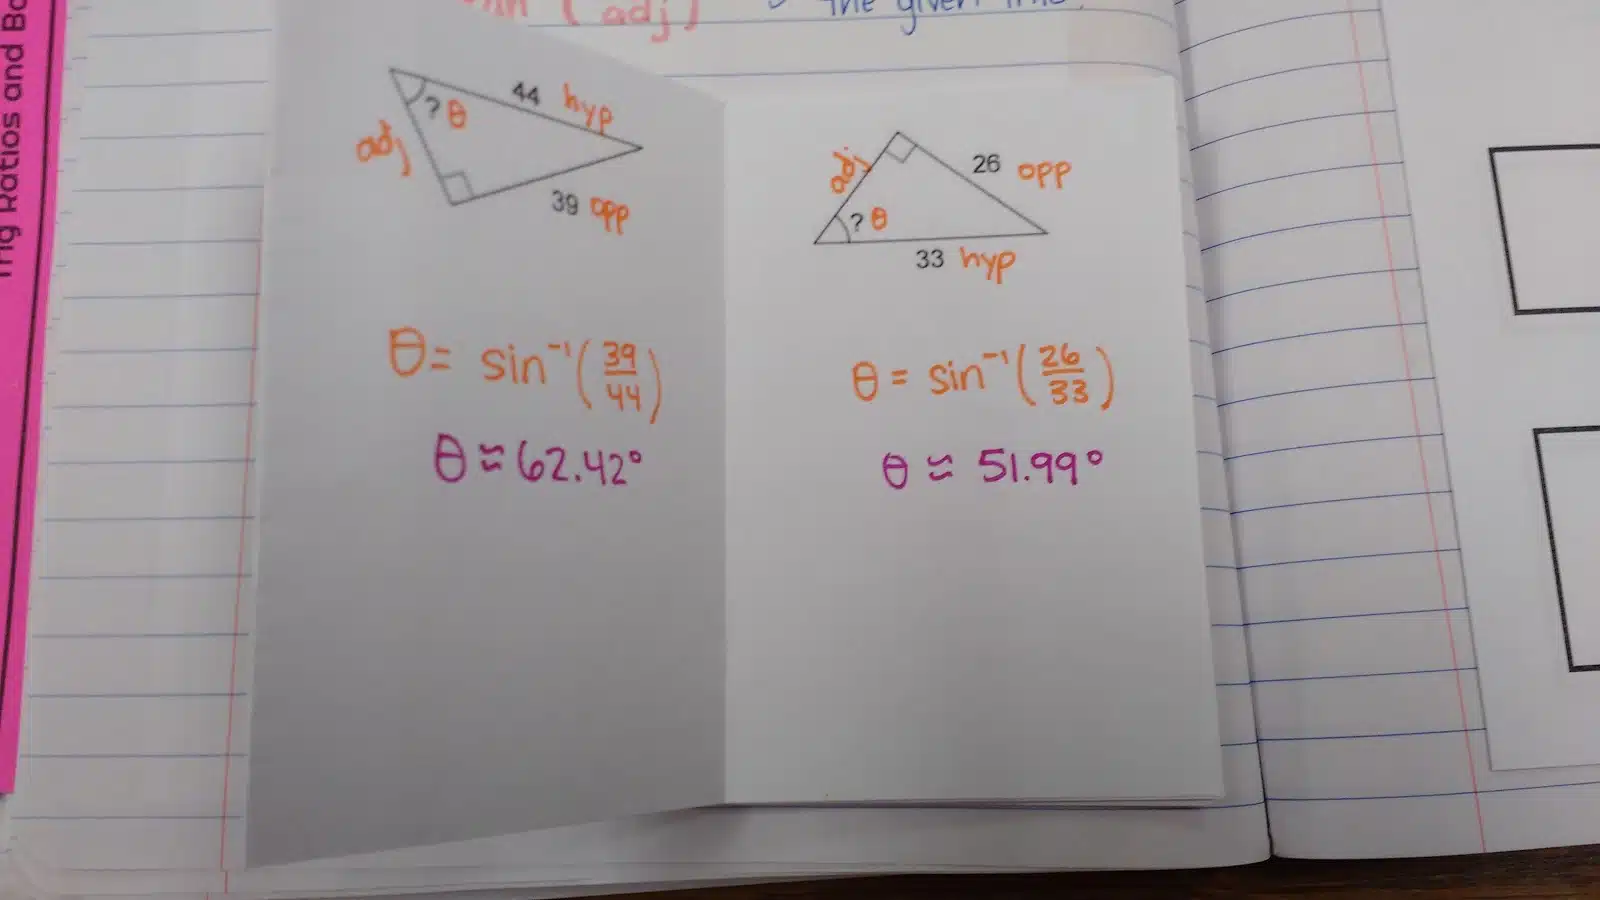 Trig Ratios and
( adj )
the given
44 hyp
? θ
adj
39 opp
θ = sin⁻¹(39/44)
θ ≈ 62.42°
adj
26 opp
? θ
33 hyp
θ = sin⁻¹(26/33)
θ ≈ 51.99°